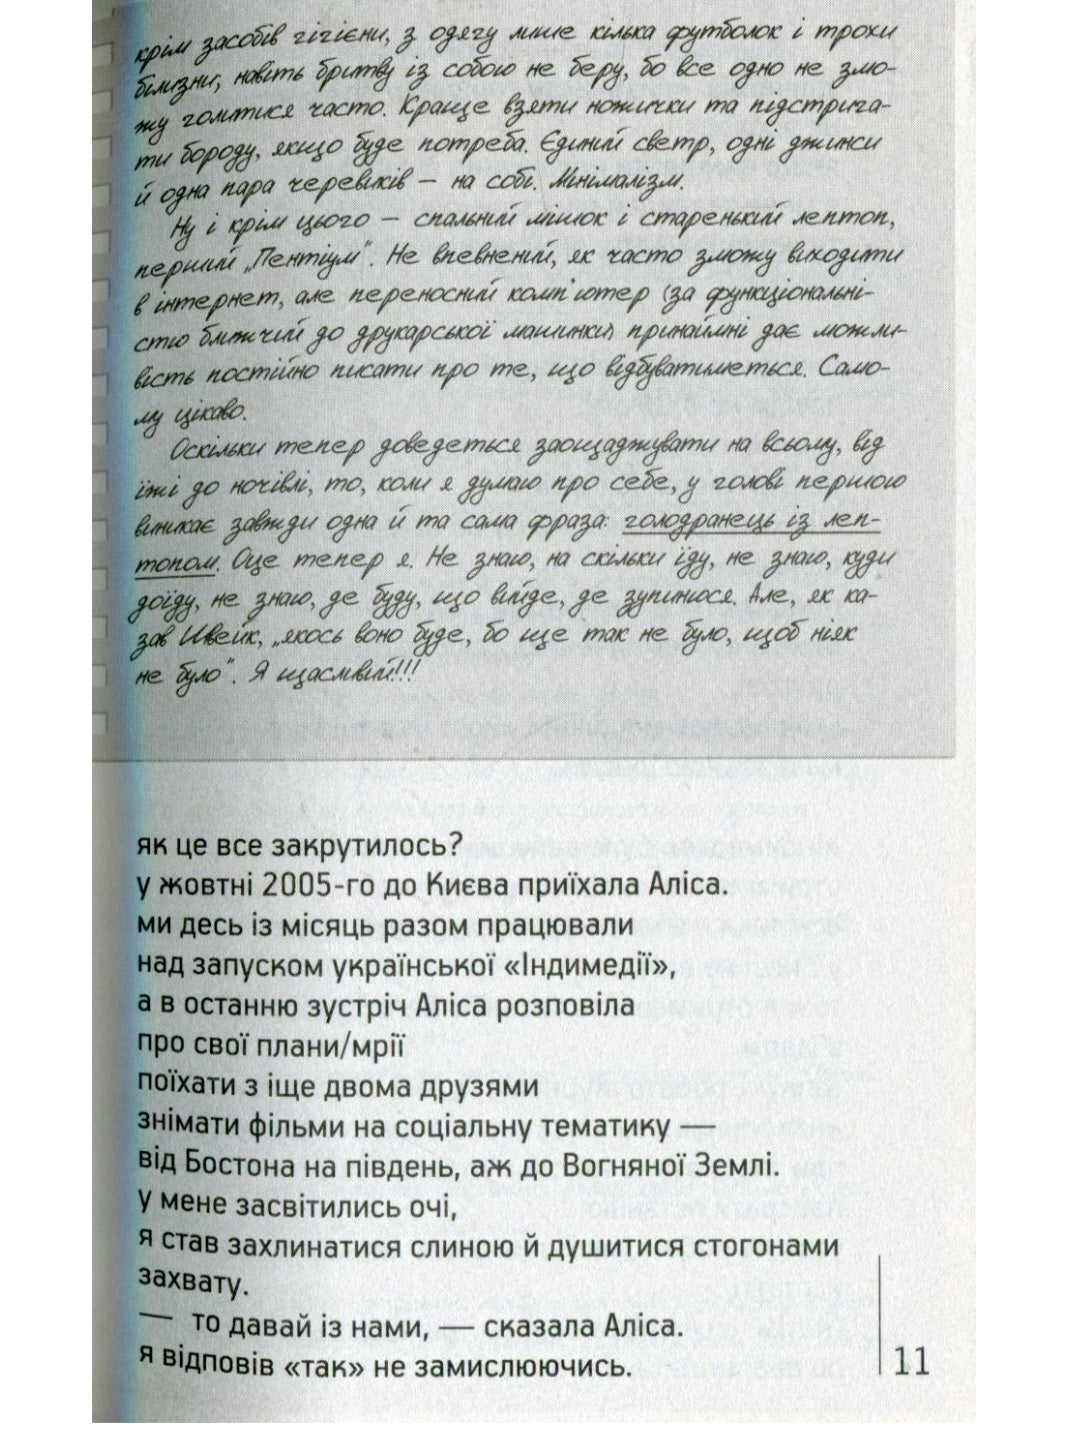 крім засобів гігієни, з одягу лише кілька футболок і трохи
білизни, навіть бритву із собою не беру, бо все одно не змо-
жу голитися часто. Краще взяти ножички та підстрига-
ти бороду, якщо буде потреба. Єдиний светр, одні джинси
й одна пара черевиків — на собі. Мінімалізм.
Ну і крім цього — спальний мішок і старенький лептоп,
перший „Пентіум“. Не впевнений, як часто зможу виходити
в інтернет, але переносний комп'ютер (за функціональні-
стю ближчий до друкарської машинки) принаймні дає можли-
вість постійно писати про те, що відбуватиметься. Само-
му цікаво.
Оскільки тепер доведеться заощаджувати на всьому, від
їжі до ночівлі, то, коли я думаю про себе, у голові першою
виникає завжди одна й та сама фраза: голодранець із леп-
топом. Оце тепер я. Не знаю, на скільки їду, не знаю, куди
доїду, не знаю, де буду, що вийде, де зупинюся. Але, як ка-
зав Швейк, „якось воно буде, бо ще так не було, щоб ніяк
не було“. Я щасливий!!!
як це все закрутилось?
у жовтні 2005-го до Києва приїхала Аліса.
ми десь із місяць разом працювали
над запуском української «Індимедії»,
а в останню зустріч Аліса розповіла
про свої плани/мрії
поїхати з іще двома друзями
знімати фільми на соціальну тематику —
від Бостона на південь, аж до Вогняної Землі.
у мене засвітились очі,
я став захлинатися слиною й душитися стогонами
захвату.
— то давай із нами, — сказала Аліса.
я відповів «так» не замислюючись.
11